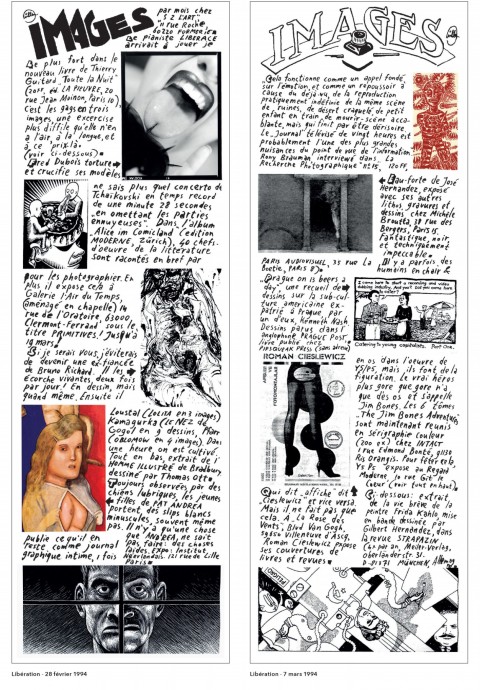 IMAGES
par mois chez
"S L'ART",
11 rue Roche,
60220 FORMERIE.
Le pianiste LIBERACE
arrivait à jouer je
Le plus fort dans le
nouveau livre de Thierry
Guitard "Toute la Nuit"
rue Jean Moinon, Paris 10),
c'est les gags en trois
images, une exercise
plus difficile qu'elle n'en
a l'air, à la longue, et
à ce prix-là.
(voir ci-dessous)
Jared Dubois torture
et crucifie ses modèles
ne sais plus quel concerto de
Tchaïkovski en temps record
de une minute 28 secondes
"en omettant les parties
ennuyeuses". Dans l'album
"Alice im Comicland" (edition
MODERNE, Zürich), 40 chefs-
d'oeuvre de la littérature
sont racontés en bref par
pour les photographier. En
plus il expose cela à
Galerie l'Air du Temps,
(aménagé en chapelle) 14
rue de l'Oratoire, 63000,
Clermont-Ferrand sous le
titre PRIMITIVES! Jusqu'à
19 mars.
Si je serai vous, j'éviterais
de devenir une ex-fiancée
de Bruno Richard. Il les
écorche vivantes, deux fois
par jour! En dessin, mais
quand même. Ensuite il
Loustal (LOLITA en 3 images)
Kamagurka (LE NEZ de
Gogol en 9 dessins), Marc
(OBLOMOW en 4 images). Dans
une heure, on est cultivé.
Tout en bas, extrait de L'
HOMME ILLUSTRÉ de Bradbury,
dessiné par Thomas Ott.
Toujours observées par des
chiens lubriques, les jeunes
filles de PAT ANDREA
portent, des slips blancs
minuscules, souvent même
pas. Il n'y a qu'une chose
que ANDREA, ne sait
pas faire: des choses
laides. Expo: Institut
Néerlandais. 121 rue de Lille
Paris
publie ce qu'il en
reste comme journal
graphique intime, 1 fois
Libération - 28 février 1994
IMAGES
"Cela fonctionne comme un appel fondé
sur l'émotion, et comme un repoussoir à
cause du déjà-vu, de la reproduction
pratiquement indéfinie de la même scène
de ruines, de désert craquelé, de petit
enfant en train de mourir - scène acca-
blante, mais qui finit par être dérisoire.
Le journal télévisé de vingt heures est
probablement l'une des plus grandes
nuisances du point de vue de l'information."
Rony Brauman interviewé dans "La
Recherche Photographique" N°15,
PARIS AUDIOVISUEL, 35 rue La
Boétie, PARIS 8)
Eau-forte de JOSÉ
HERNANDEZ, exposé
avec ses autres
lithos, gravures et
dessins chez Michèle
Broutta, 31 rue des
Bergers, Paris 15.
Fantastique, noir
et techniquement
impeccable.
Il y a parfois des
humains en chair &
"Prague on is beers a
day", une recueil de
dessins sur la sub-cul-
ture americaine ex-
patrié à Prague, par
un d'eux, Kenneth Nash
Dessins parus dans l'
anglophone PRAGUE POST
livre publié chez
I came here to start a recording and video
dubbing industry. And you?
Catering to young capitalists. Part One.
ROMAN CIESLEWICZ
en os dans l'oeuvre de
Y5/P5, mais ils font de la
figuration. Le vrai héros
plus gore que gore n'a
que des os et s'appelle
Jim Bones. Les 6 tomes
"The Jim Bones Adventures"
sont maintenant reunis
en sérigraphie couleur
(200 ex) chez INTACT
1 rue Edmond Bonté, 91130
Ris Orangis. Pour fêter cela,
Y5 P5 expose au Regard
Moderne,
Coeur
Qui dit "affiche" dit
"Cieslewicz" et vice versa.
Mais il ne fait pas que
cela. À "La Rose des
Vents", Blvd Van Gogh,
59650 Villeneuve d'Ascq,
Roman Cieslewicz expose
ses couvertures de
livres et revues
Ci-dessous: extrait
de la vie brève de la
peintre Frida Kahlo mise
en bande dessinée par
Gilbert Hernández, dans
la revue STRAPAZIN
(4x par an, Meiter-Verlag,
Oberländer str. 31.
MÜNCHEN,
Libération - 7 mars 1994